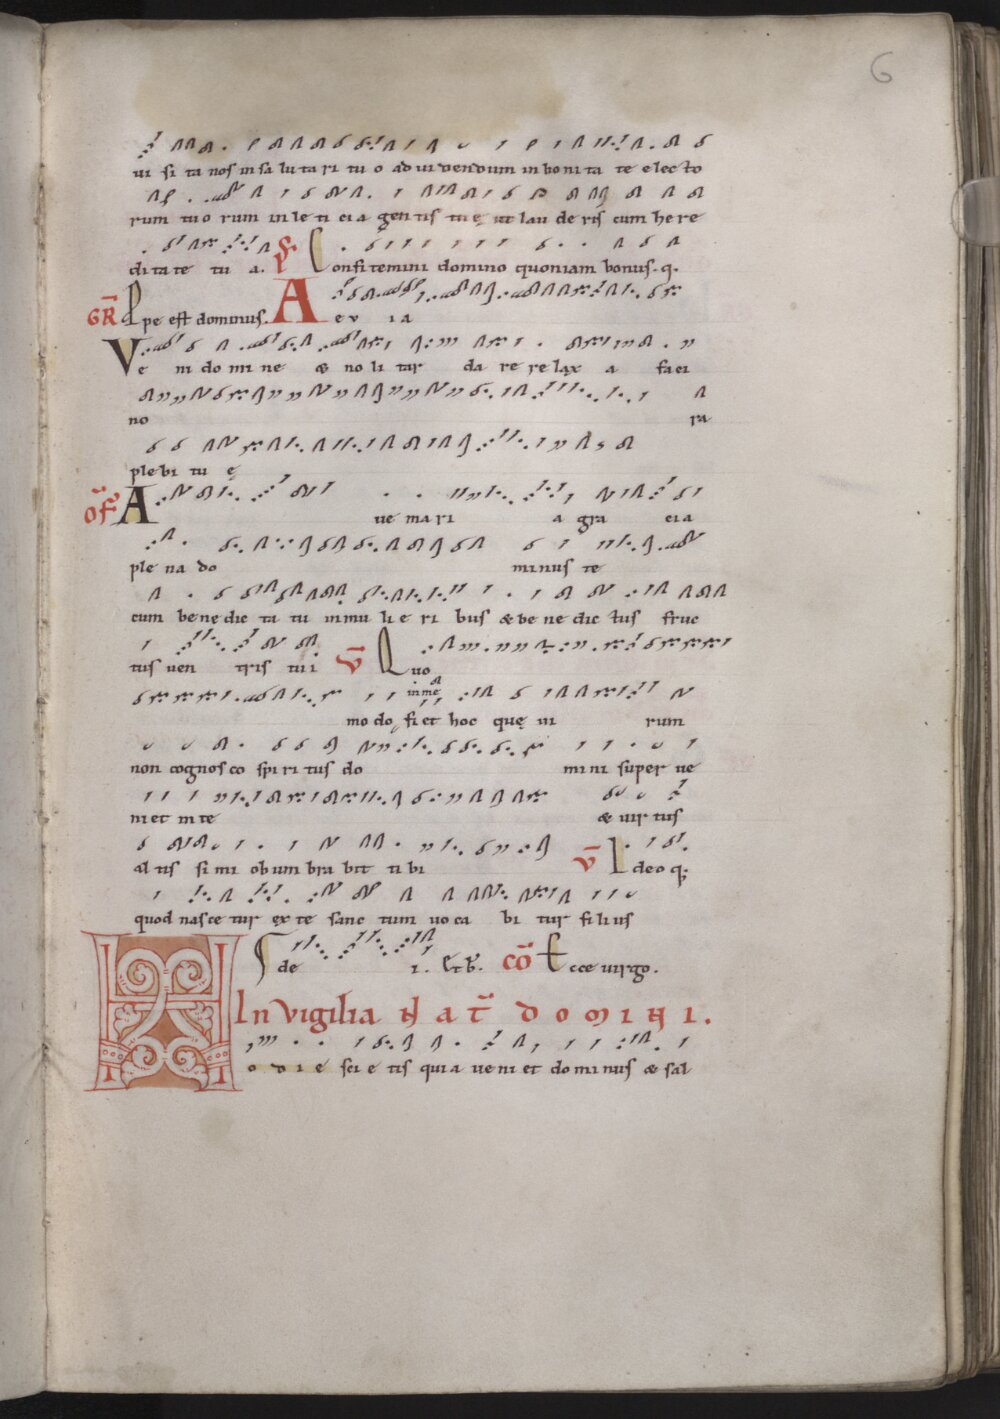 6
ui si ta nos in sa lu ta ri tu o ad ui dendum in bo ni ta te e lec to
rum tu o rum in le ti ci a gen tis tu ę ut lau de ris cum he re
di ta te tu a. Ps Confitemini domino quoniam bonus. q.
GR Prope est dominus. A e v i a
Ve ni do mi ne & no li tar da re re lax a faci
no ra
ple bi tu ę
OF A ue ma ri a gra ci a
ple na do minus te
cum be ne dic ta tu in mu li e ri bus & be ne dic tus fruc
tus uen tris tu i V Quo
in me
mo do fi et hoc quę ui rum
non cognos co spi ri tus do mi ni super ue
ni et in te & uir tus
al tis si mi ob um bra bit ti bi V Ideo q;
quod nas ce tur ex te sanc tum uo ca bi tur fi li us
de i. CO Ecce uirgo.
In Vigilia NAT DOMINI.
H o d i e sci e tis qui a ue ni et do mi nus & sal